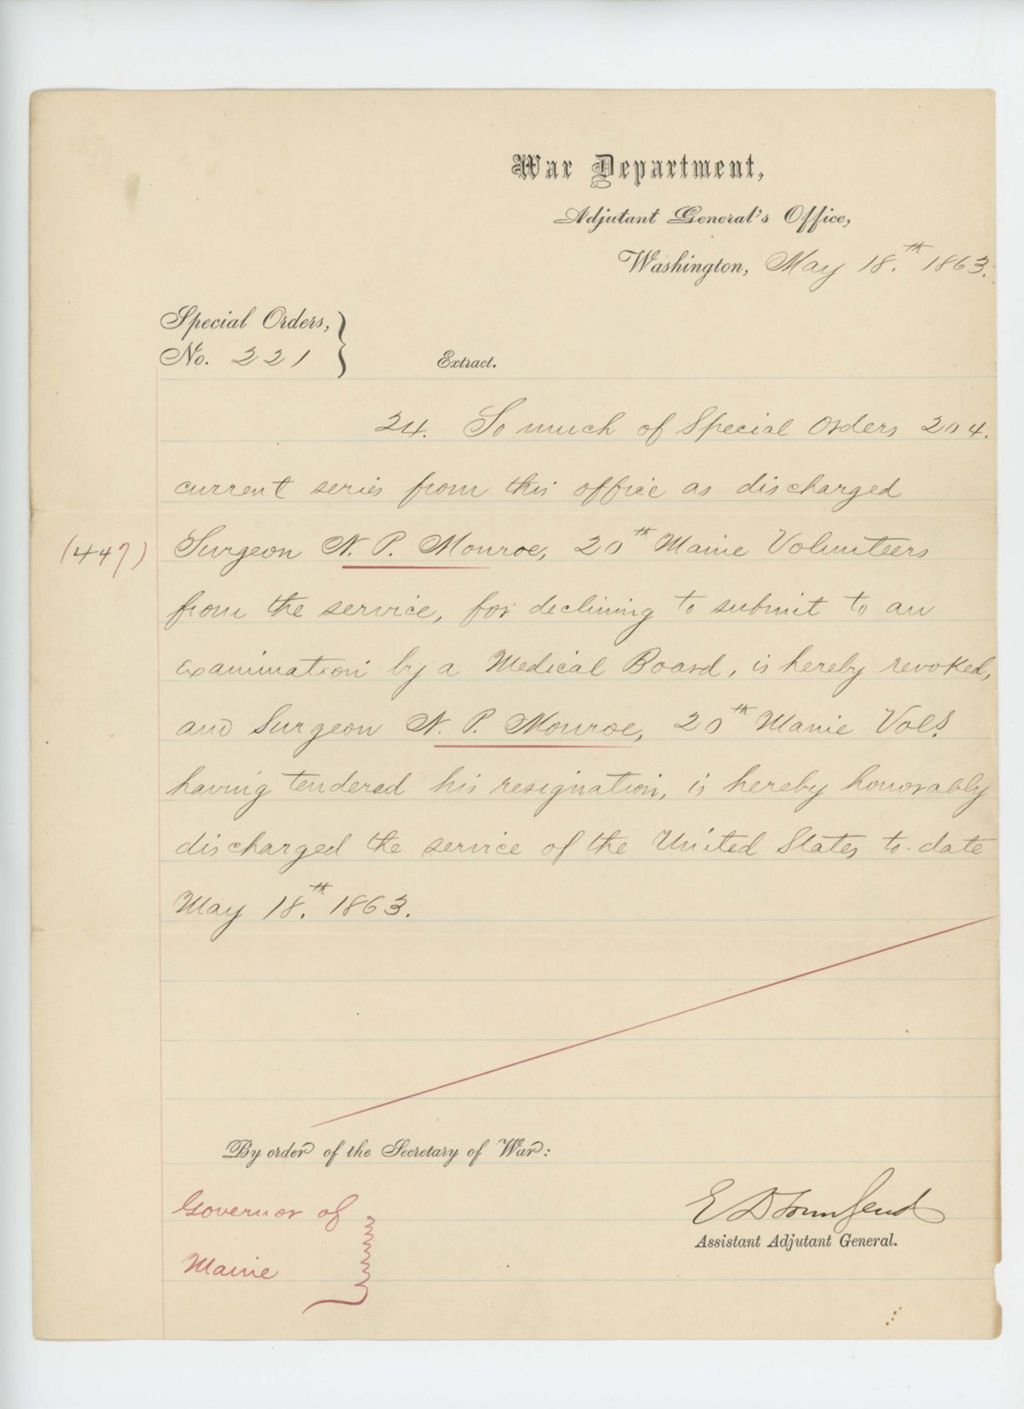 War Department,
Adjutant General's Office,
Washington, May 18.th 1863.
Special Orders,
No. 221
Extract.
24. So much of Special Orders 204.
current series from this office as discharged
(447) Surgeon N. P. Monroe, 20th Maine Volunteers
from the service, for declining to submit to an
examination by a Medical Board, is hereby revoked,
and Surgeon N. P. Monroe, 20th Maine Vols.
having tendered his resignation, is hereby honorably
discharged the service of the United States to date
May 18.th 1863.
By order of the Secretary of War:
Governor of
Maine
E D Townsend
Assistant Adjutant General.